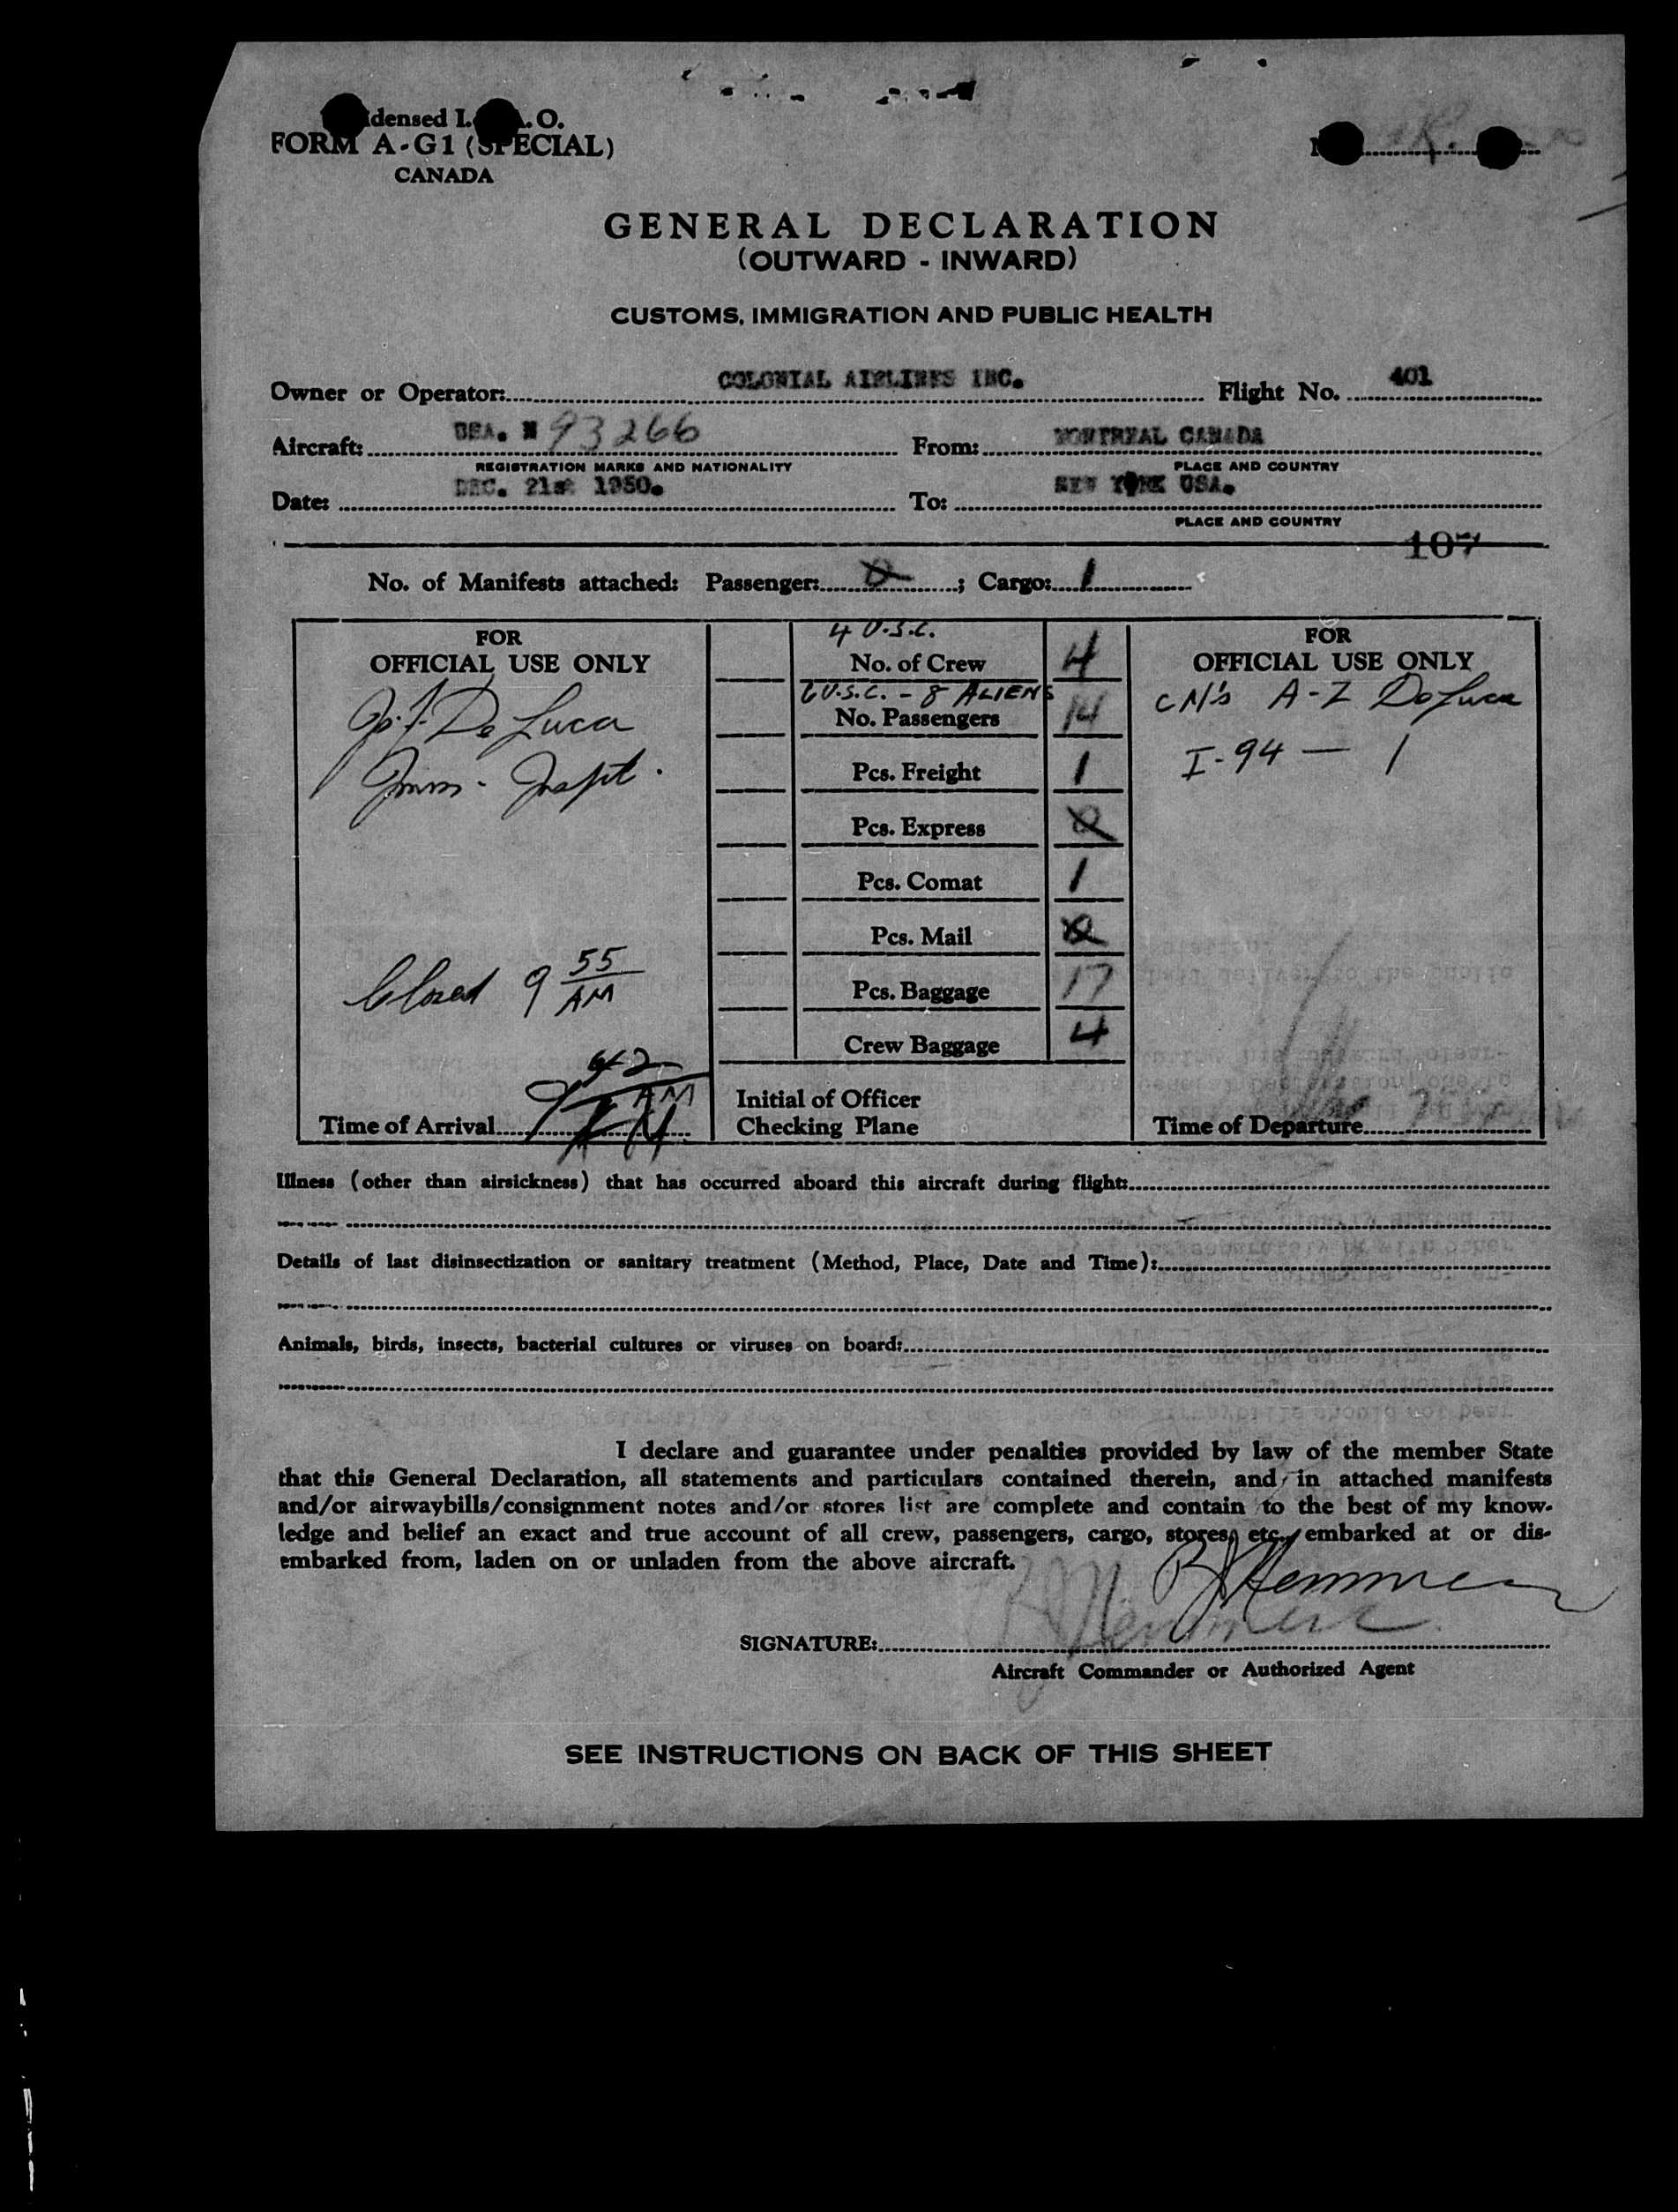 densed I. .O.
FORM A-G1 (SPECIAL)
CANADA
GENERAL DECLARATION
(OUTWARD - INWARD)
CUSTOMS, IMMIGRATION AND PUBLIC HEALTH
Owner or Operator: COLONIAL AIRLINES INC. Flight No. 401
Aircraft: USA. N 93266 From: MONTREAL CANADA
REGISTRATION MARKS AND NATIONALITY PLACE AND COUNTRY
Date: DEC. 21st 1950. To: NEW YORK USA.
PLACE AND COUNTRY
107
No. of Manifests attached: Passenger: 0; Cargo: 1
FOR
OFFICIAL USE ONLY
De Luca
Imm. Inspt.
Closed 9 55 AM
Time of Arrival 9 42 AM
4 U.S.C.
No. of Crew 4
6 U.S.C. - 8 ALIENS
No. Passengers 14
Pcs. Freight 1
Pcs. Express 0
Pcs. Comat 1
Pcs. Mail 0
Pcs. Baggage 17
Crew Baggage 4
Initial of Officer
Checking Plane
FOR
OFFICIAL USE ONLY
CN's A-Z DeLuca
I-94 — 1
Time of Departure
Illness (other than airsickness) that has occurred aboard this aircraft during flight:
Details of last disinsectization or sanitary treatment (Method, Place, Date and Time):
Animals, birds, insects, bacterial cultures or viruses on board:
I declare and guarantee under penalties provided by law of the member State
that this General Declaration, all statements and particulars contained therein, and in attached manifests
and/or airwaybills/consignment notes and/or stores list are complete and contain to the best of my know-
ledge and belief an exact and true account of all crew, passengers, cargo, stores, etc., embarked at or dis-
embarked from, laden on or unladen from the above aircraft.
SIGNATURE:
Aircraft Commander or Authorized Agent
SEE INSTRUCTIONS ON BACK OF THIS SHEET